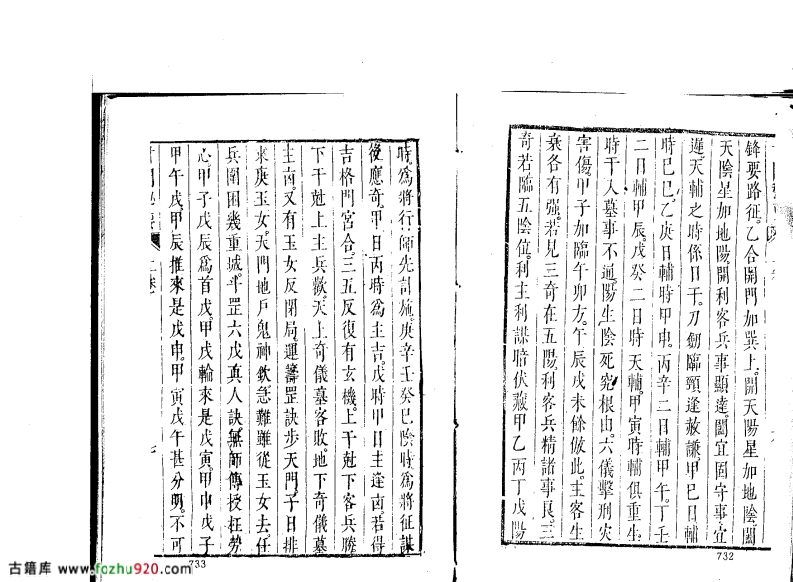 鋒要路征乙合開門加巽上開天陽星加地陰闔
天陰星加地陽開利客兵事顯達闔宜固守事宜
遲天輔之時係日干刀劍臨頸逢赦謙甲巳日輔
時巳巳乙庚日輔時甲申丙辛二日輔甲午丁壬
二日輔甲辰戊癸二日時天輔甲寅時輔俱重生
時干入墓事不通陽生陰死究根由六儀擊刑灾
害傷甲子如臨午卯方午辰戌未餘倣此主客生
乘各有强若見三奇在五陽利客兵精諸事良三
奇若臨五陰位利主利謀暗伏藏甲乙丙丁戊陽
732
時為將行師先討施庚辛壬癸巳陰時為將征謀
後應奇甲日丙時為主吉戊時甲日主逢凶若得
吉格門宮合三五反復有玄機上干尅下客兵勝
下干尅上主兵歡天上奇儀墓客敗地下奇儀墓
主凶又有玉女反閉局運籌罡訣步天門子日排
來庚玉女天門地戶鬼神欽急難難從玉女去任
兵圍困幾重城平罡六戊真人訣無師傳授枉勞
心甲子戊辰為首戊甲戌輪來是戊寅甲申戊子
甲午戊甲辰推來是戊申甲寅戊午甚分明不可
七
733
古籍库 www.fozhu920.com